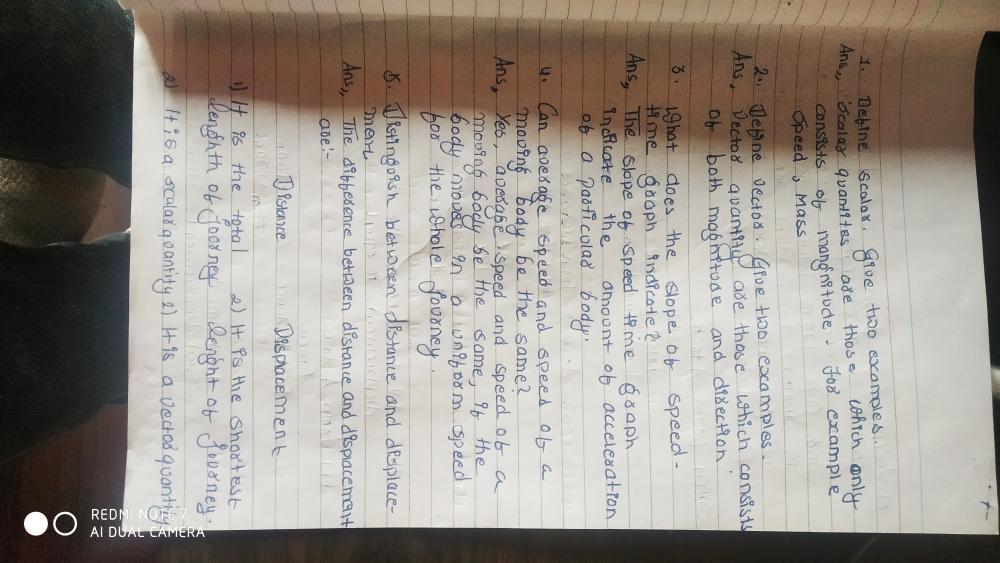 1. Define scalar. Give two examples.
Ans,, Scalar quantites are those which only
consists of mangnitude. For example
Speed, Mass
2. Define vector. Give two examples.
Ans, Vector quantity are those which consists
of both magnitude and direction
3. What does the slope of speed-
time graph indicate?
Ans, The slope of speed time graph
indicate the amount of acceleration
of a particular body.
4. Can average speed and speed of a
moving body be the same?
Ans, Yes, average speed and speed of a
moving body be the same, if the
body moves in a uniform speed
for the whole journey.
5. Distingish between distance and displace-
ment
Ans,, The difference between distance and dispacement
are:-
Distance Dispacement
1) It is the total 2) It is the shortest
lenghth of journey lenght of journey.
2) It is a scalar quantity 2) It is a vector quantity
REDMI NOTE 7
AI DUAL CAMERA